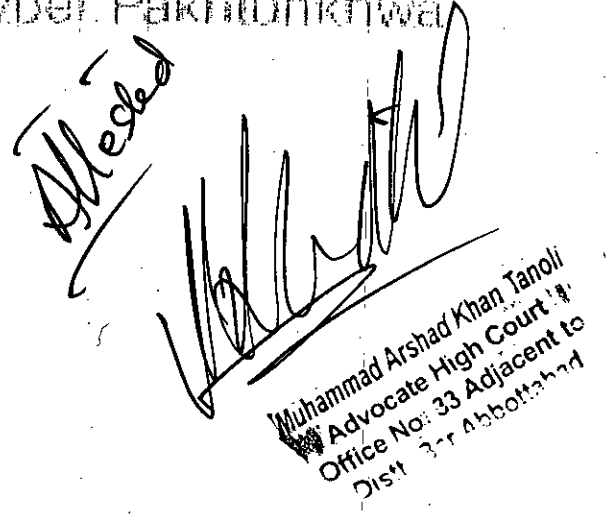 Pakhtunkhwa
Attested
Muhammad Arshad Khan Tanoli
Advocate High Court
Office No: 33 Adjacent to
Distt. Bar Abbottabad